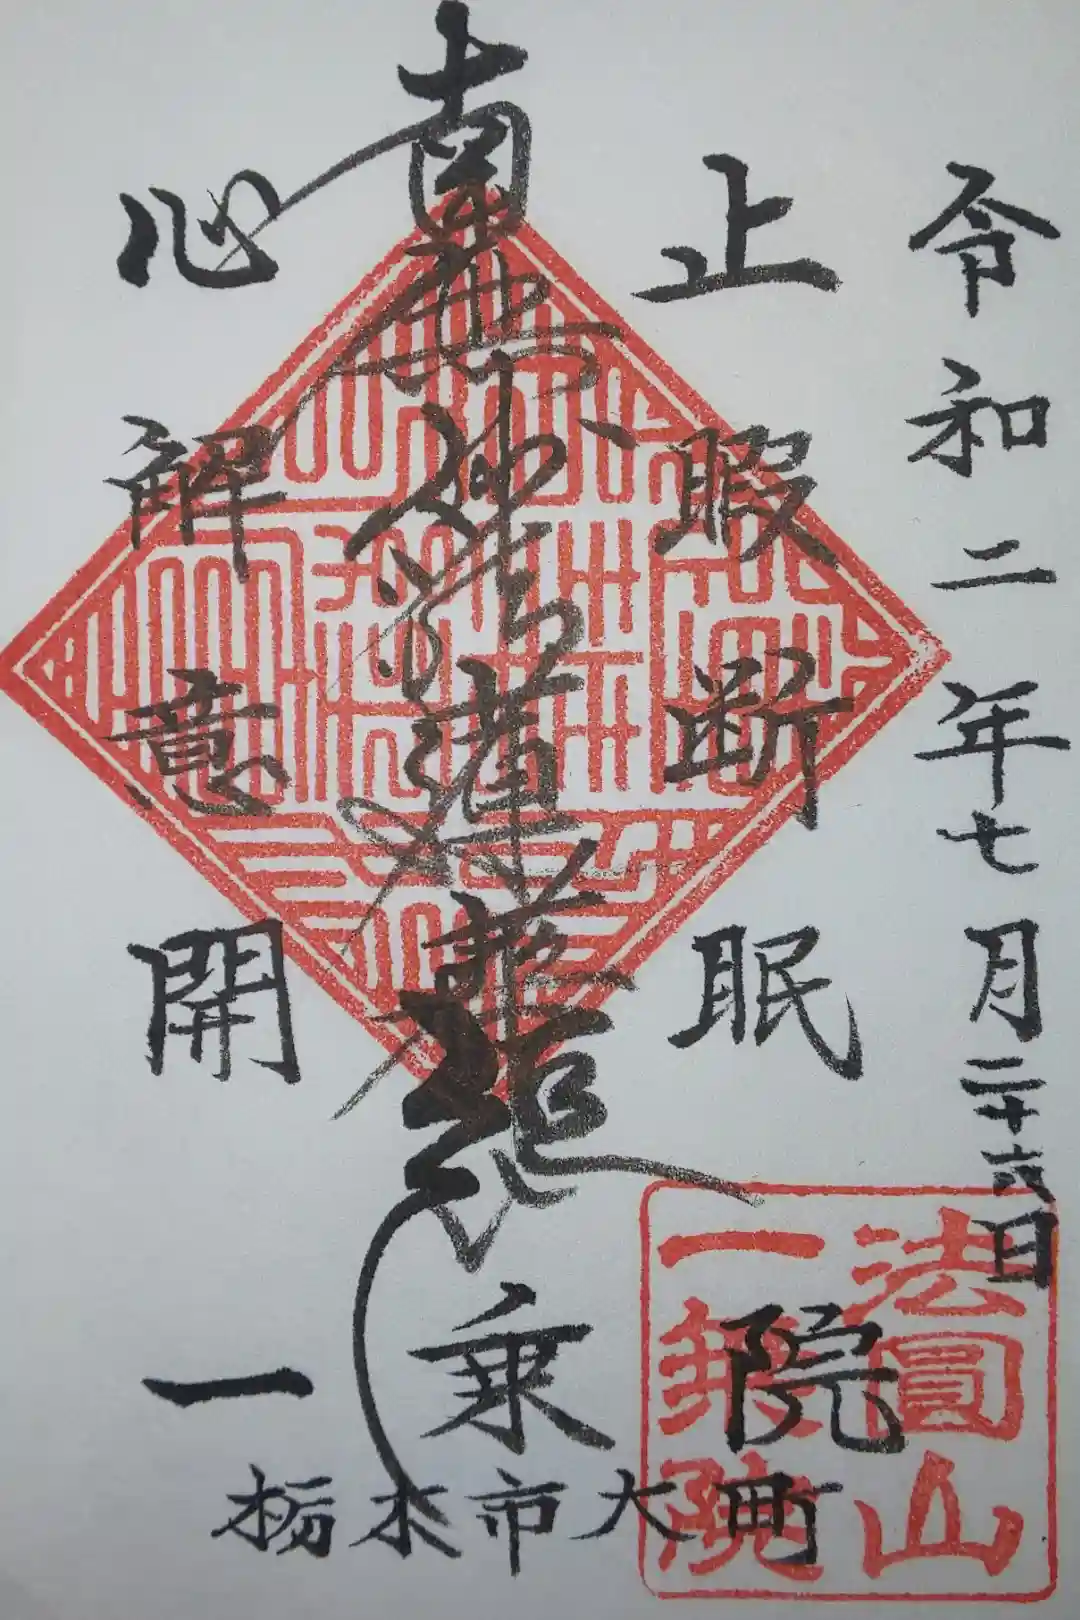 令和二年七月二十六日
止暇断眠
南無妙法蓮華経
心解意開
一乗院
栃木市大町
法圓山
一乗院